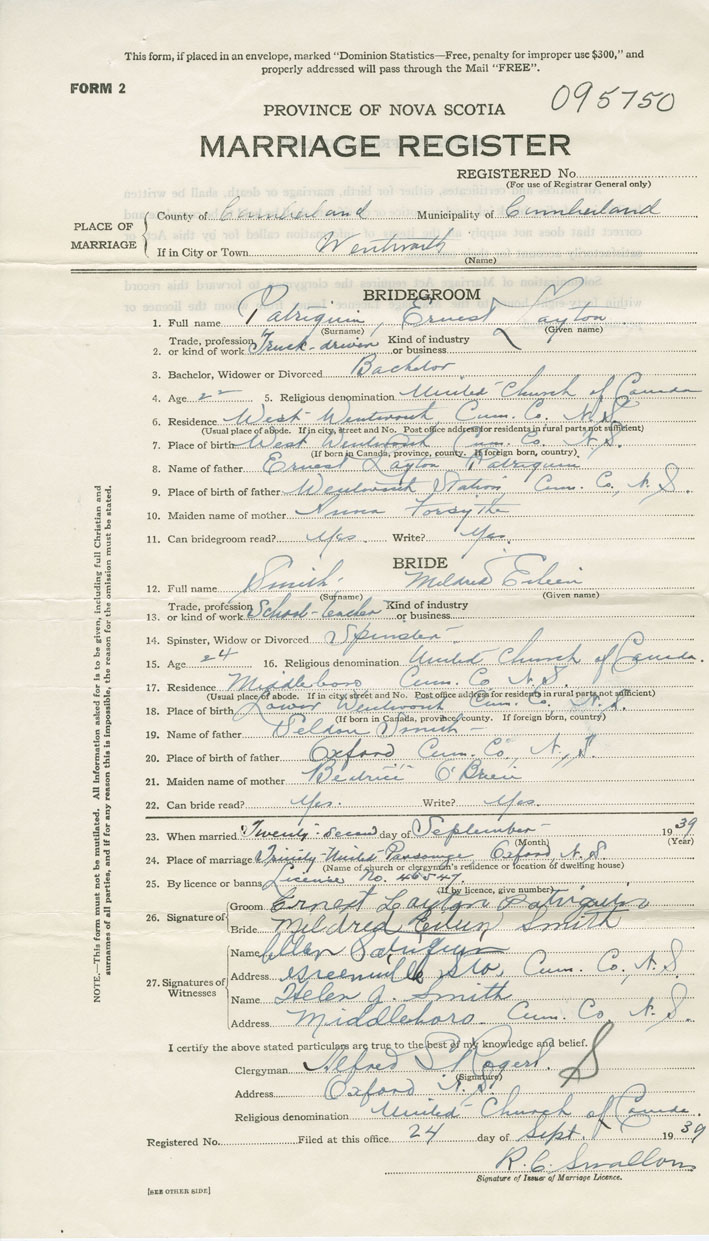 This form, if placed in an envelope, marked "Dominion Statistics—Free, penalty for improper use $300," and
properly addressed will pass through the Mail "FREE".
FORM 2
095750
PROVINCE OF NOVA SCOTIA
MARRIAGE REGISTER
REGISTERED No.
(For use of Registrar General only)
PLACE OF MARRIAGE
County of Cumberland Municipality of Cumberland
If in City or Town Wentworth
(Name)
BRIDEGROOM
1. Full name Patriquin, Ernest Layton
(Surname) (Given name)
2. Trade, profession or kind of work Truck-driver Kind of industry or business
3. Bachelor, Widower or Divorced Bachelor
4. Age 22 5. Religious denomination United Church of Canada
6. Residence West Wentworth, Cum. Co. N.S.
(Usual place of abode. If in city, street and No. Post office address for residents in rural parts not sufficient)
7. Place of birth West Wentworth Cum. Co. N.S.
(If born in Canada, province, county. If foreign born, country)
8. Name of father Ernest Layton Patriquin
9. Place of birth of father Wentworth Station Cum. Co., N.S.
10. Maiden name of mother Anna Forsythe
11. Can bridegroom read? Yes. Write? Yes.
BRIDE
12. Full name Smith. Mildred Eileen
(Surname) (Given name)
13. Trade, profession or kind of work School-teacher Kind of industry or business
14. Spinster, Widow or Divorced Spinster
15. Age 24 16. Religious denomination United Church of Canada.
17. Residence Middleboro, Cum. Co N.S.
(Usual place of abode. If in city, street and No. Post office address for residents in rural parts not sufficient)
18. Place of birth Lower Wentworth Cum. Co. N.S.
(If born in Canada, province, county. If foreign born, country)
19. Name of father Seldon Smith
20. Place of birth of father Oxford Cum. Co., N.S.
21. Maiden name of mother Beatrice O'Brien
22. Can bride read? Yes. Write? Yes.
23. When married Twenty-second day of September 1939
(Month) (Year)
24. Place of marriage Trinity United Parsonage, Oxford, N.S.
(Name of church or clergyman's residence or location of dwelling house)
25. By licence or banns License No.
(If by licence, give number)
26. Signature of
Groom Ernest Layton Patriquin
Bride Mildred Eileen Smith
27. Signatures of Witnesses
Name Ellen Patriquin
Address Greenville Sta, Cum. Co. N.S.
Name Helen J. Smith
Address Middleboro Cum. Co N.S.
I certify the above stated particulars are true to the best of my knowledge and belief.
Clergyman Alfred Rogers. S
(Signature)
Address Oxford N.S.
Religious denomination United Church of Canada.
Registered No. Filed at this office 24 day of Sept. 1939
R. C. Swallow
Signature of Issuer of Marriage Licence.
[SEE OTHER SIDE]
NOTE.—This form must not be mutilated. All information asked for is to be given, including full Christian and
surnames of all parties, and if for any reason this is impossible, the reason for the omission must be stated.